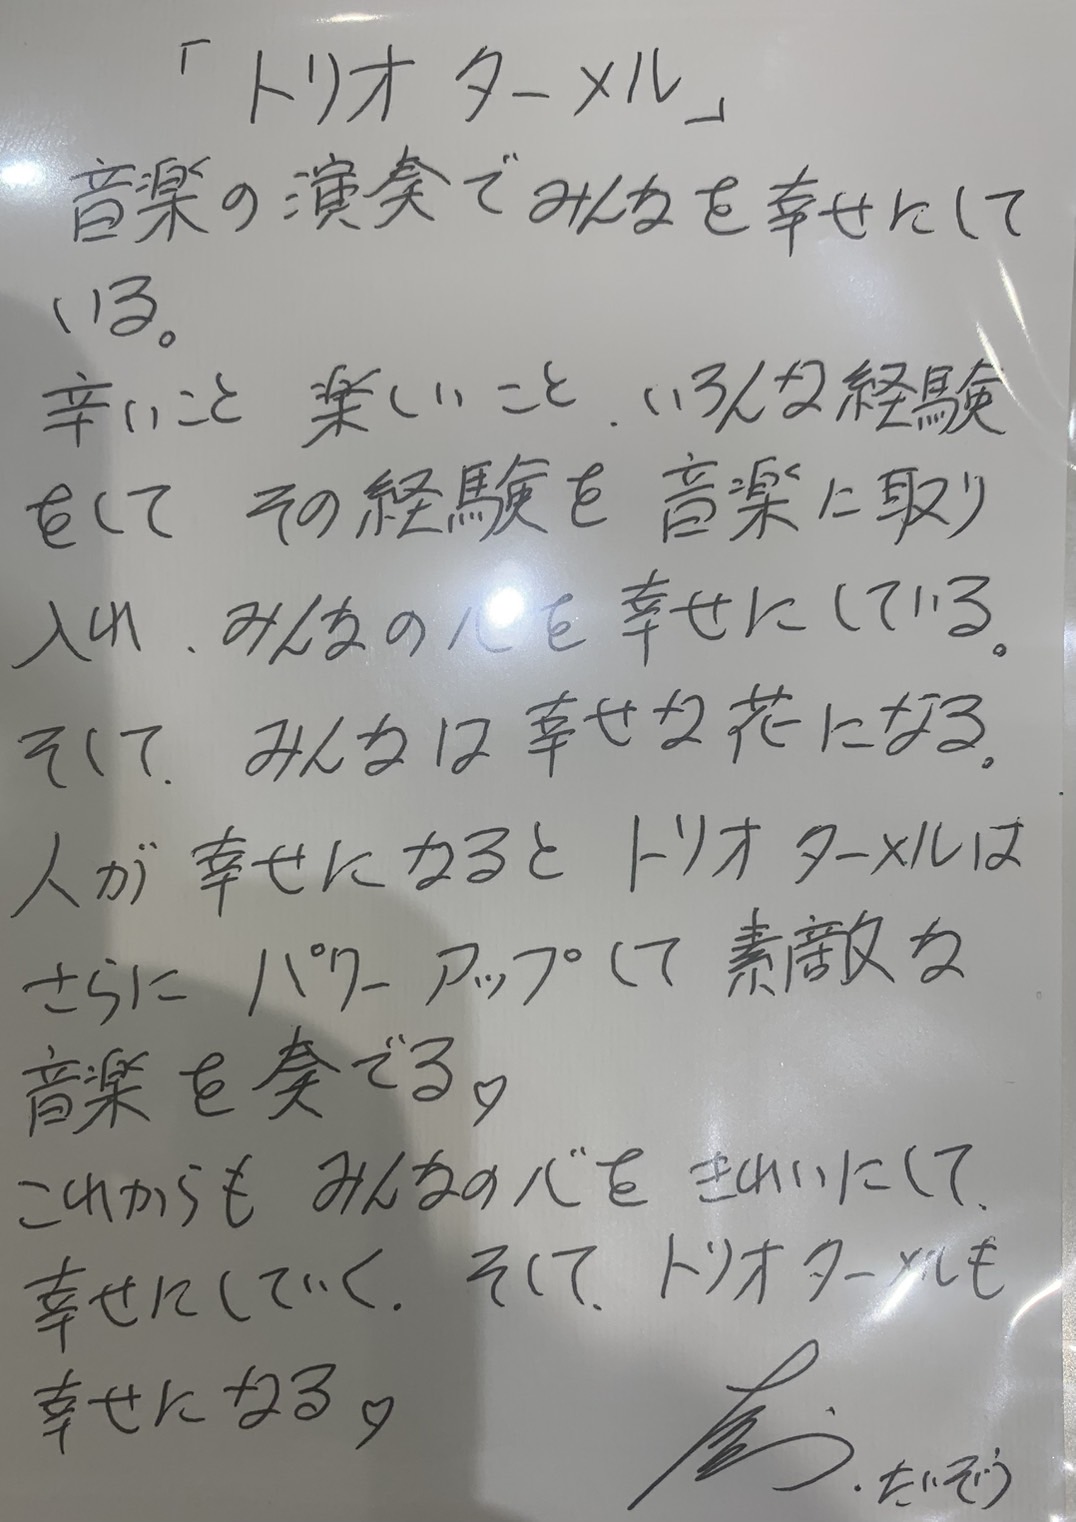 「トリオ ターメル」
音楽の演奏でみんなを幸せにして
いる。
辛いこと 楽しいこと、いろんな経験
をして その経験を音楽に取り
入れ、みんなの心を幸せにしている。
そして、みんなは幸せな花になる。
人が幸せになるとトリオ ターメルは
さらに パワーアップして素敵な
音楽を奏でる♡
これからも みんなの心を きれいにして、
幸せにしていく、そして、トリオ ターメルも
幸せになる♡
.たいぞう